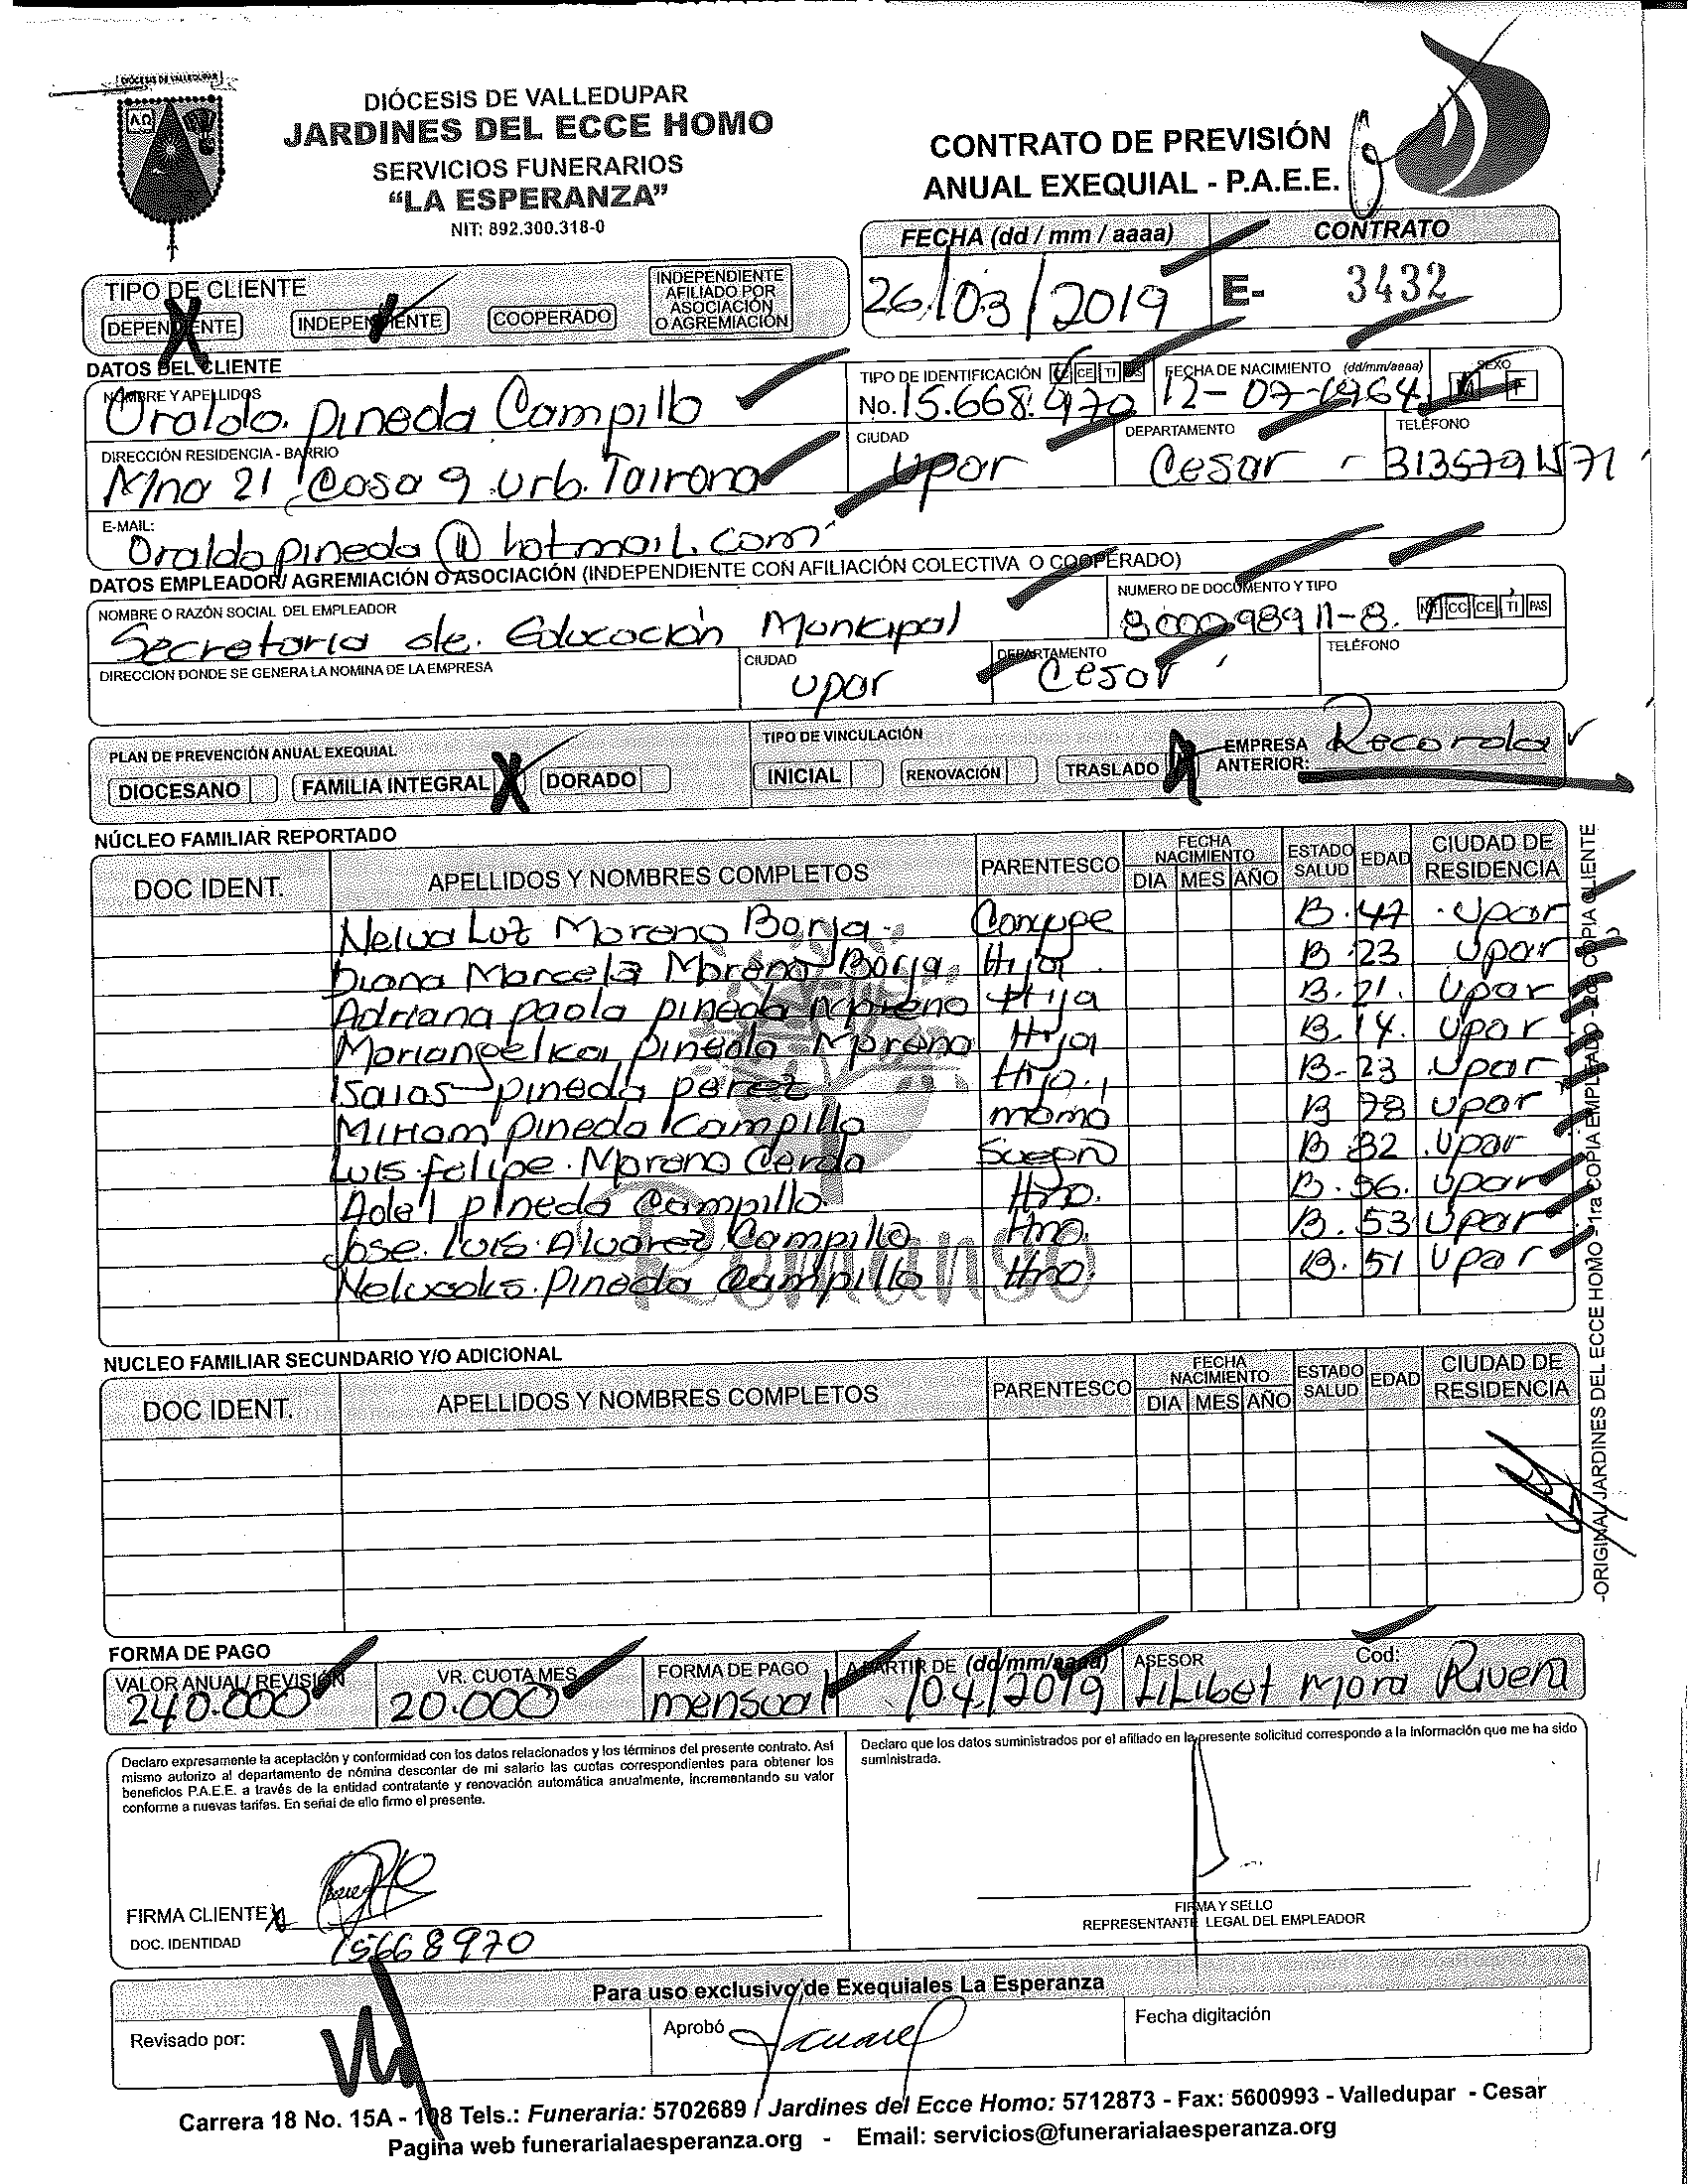 DIÓCESIS DE VALLEDUPAR
DIÓCESIS DE VALLEDUPAR
JARDINES DEL ECCE HOMO
SERVICIOS FUNERARIOS
“LA ESPERANZA”
NIT: 892.300.318-0
CONTRATO DE PREVISIÓN
ANUAL EXEQUIAL - P.A.E.E.
FECHA (dd / mm / aaaa) CONTRATO
26/03/2019 E- 3432
TIPO DE CLIENTE
DEPENDIENTE INDEPENDIENTE COOPERADO INDEPENDIENTE AFILIADO POR ASOCIACIÓN O AGREMIACIÓN
DATOS DEL CLIENTE
NOMBRE Y APELLIDOS TIPO DE IDENTIFICACIÓN CC CE TI FECHA DE NACIMIENTO (dd/mm/aaaa) SEXO M F
Oraldo. pineda Campillo No. 15.668.970 12-07-1964
DIRECCIÓN RESIDENCIA - BARRIO CIUDAD DEPARTAMENTO TELÉFONO
Mna 21 Casa 9 urb. Tairona Upar Cesar - 313579
E-MAIL:
Oraldopineda@hotmail.com
DATOS EMPLEADOR/ AGREMIACIÓN O ASOCIACIÓN (INDEPENDIENTE CON AFILIACIÓN COLECTIVA O COOPERADO)
NOMBRE O RAZÓN SOCIAL DEL EMPLEADOR NUMERO DE DOCUMENTO Y TIPO
Secretaria de. Educación Municipal 800098911-8. NIT CC CE TI PAS
DIRECCION DONDE SE GENERA LA NOMINA DE LA EMPRESA CIUDAD DEPARTAMENTO TELÉFONO
upar Cesar
PLAN DE PREVENCIÓN ANUAL EXEQUIAL TIPO DE VINCULACIÓN
DIOCESANO FAMILIA INTEGRAL X DORADO INICIAL RENOVACIÓN TRASLADO EMPRESA ANTERIOR: Recordar
NÚCLEO FAMILIAR REPORTADO
DOC IDENT. APELLIDOS Y NOMBRES COMPLETOS PARENTESCO FECHA NACIMIENTO DIA MES AÑO ESTADO SALUD EDAD CIUDAD DE RESIDENCIA
Nelva Luz Moreno Borja. Conyupe B. 47 Upar
Diana Marcela Moreno Borja. Hija B 23 Upar
Adriana paola pineda Moreno Hija B. 21. Upar
Mariangelica pineda Moreno Hija B. 14. Upar
Isaias pineda perez Hijo. B- 23 Upar
Miriam pineda Campillo mama B 78 Upar
Luis felipe. Moreno Cerda Suegro B 82 Upar
Adal pineda Campillo. Hno. B. 56. Upar
Jose. Luis. Alvarez Campillo Hno. B. 53 Upar
Pineda Campillo Hno. B. 51 Upar
Remanso
NUCLEO FAMILIAR SECUNDARIO Y/O ADICIONAL
DOC IDENT. APELLIDOS Y NOMBRES COMPLETOS PARENTESCO FECHA NACIMIENTO DIA MES AÑO ESTADO SALUD EDAD CIUDAD DE RESIDENCIA
-ORIGINAL JARDINES DEL ECCE HOMO - 1ra COPIA EMPLEADO - 2da COPIA CLIENTE
FORMA DE PAGO
VALOR ANUAL/ REVISIÓN VR. CUOTA MES FORMA DE PAGO APARTIR DE (dd/mm/aaaa) ASESOR Cod:
240.000 20.000 mensual /04/2019 Lilibet Mora Rivera
Declaro expresamente la aceptación y conformidad con los datos relacionados y los términos del presente contrato. Así
mismo autorizo al departamento de nómina descontar de mi salario las cuotas correspondientes para obtener los
beneficios P.A.E.E. a través de la entidad contratante y renovación automática anualmente, incrementando su valor
conforme a nuevas tarifas. En señal de ello firmo el presente.
Declaro que los datos suministrados por el afiliado en la presente solicitud corresponde a la información que me ha sido
suministrada.
FIRMA CLIENTE
DOC. IDENTIDAD 15668970
FIRMA Y SELLO
REPRESENTANTE LEGAL DEL EMPLEADOR
Para uso exclusivo de Exequiales La Esperanza
Revisado por: Aprobó Fecha digitación
Carrera 18 No. 15A - 108 Tels.: Funeraria: 5702689 / Jardines del Ecce Homo: 5712873 - Fax: 5600993 - Valledupar - Cesar
Pagina web funerarialaesperanza.org - Email: servicios@funerarialaesperanza.org